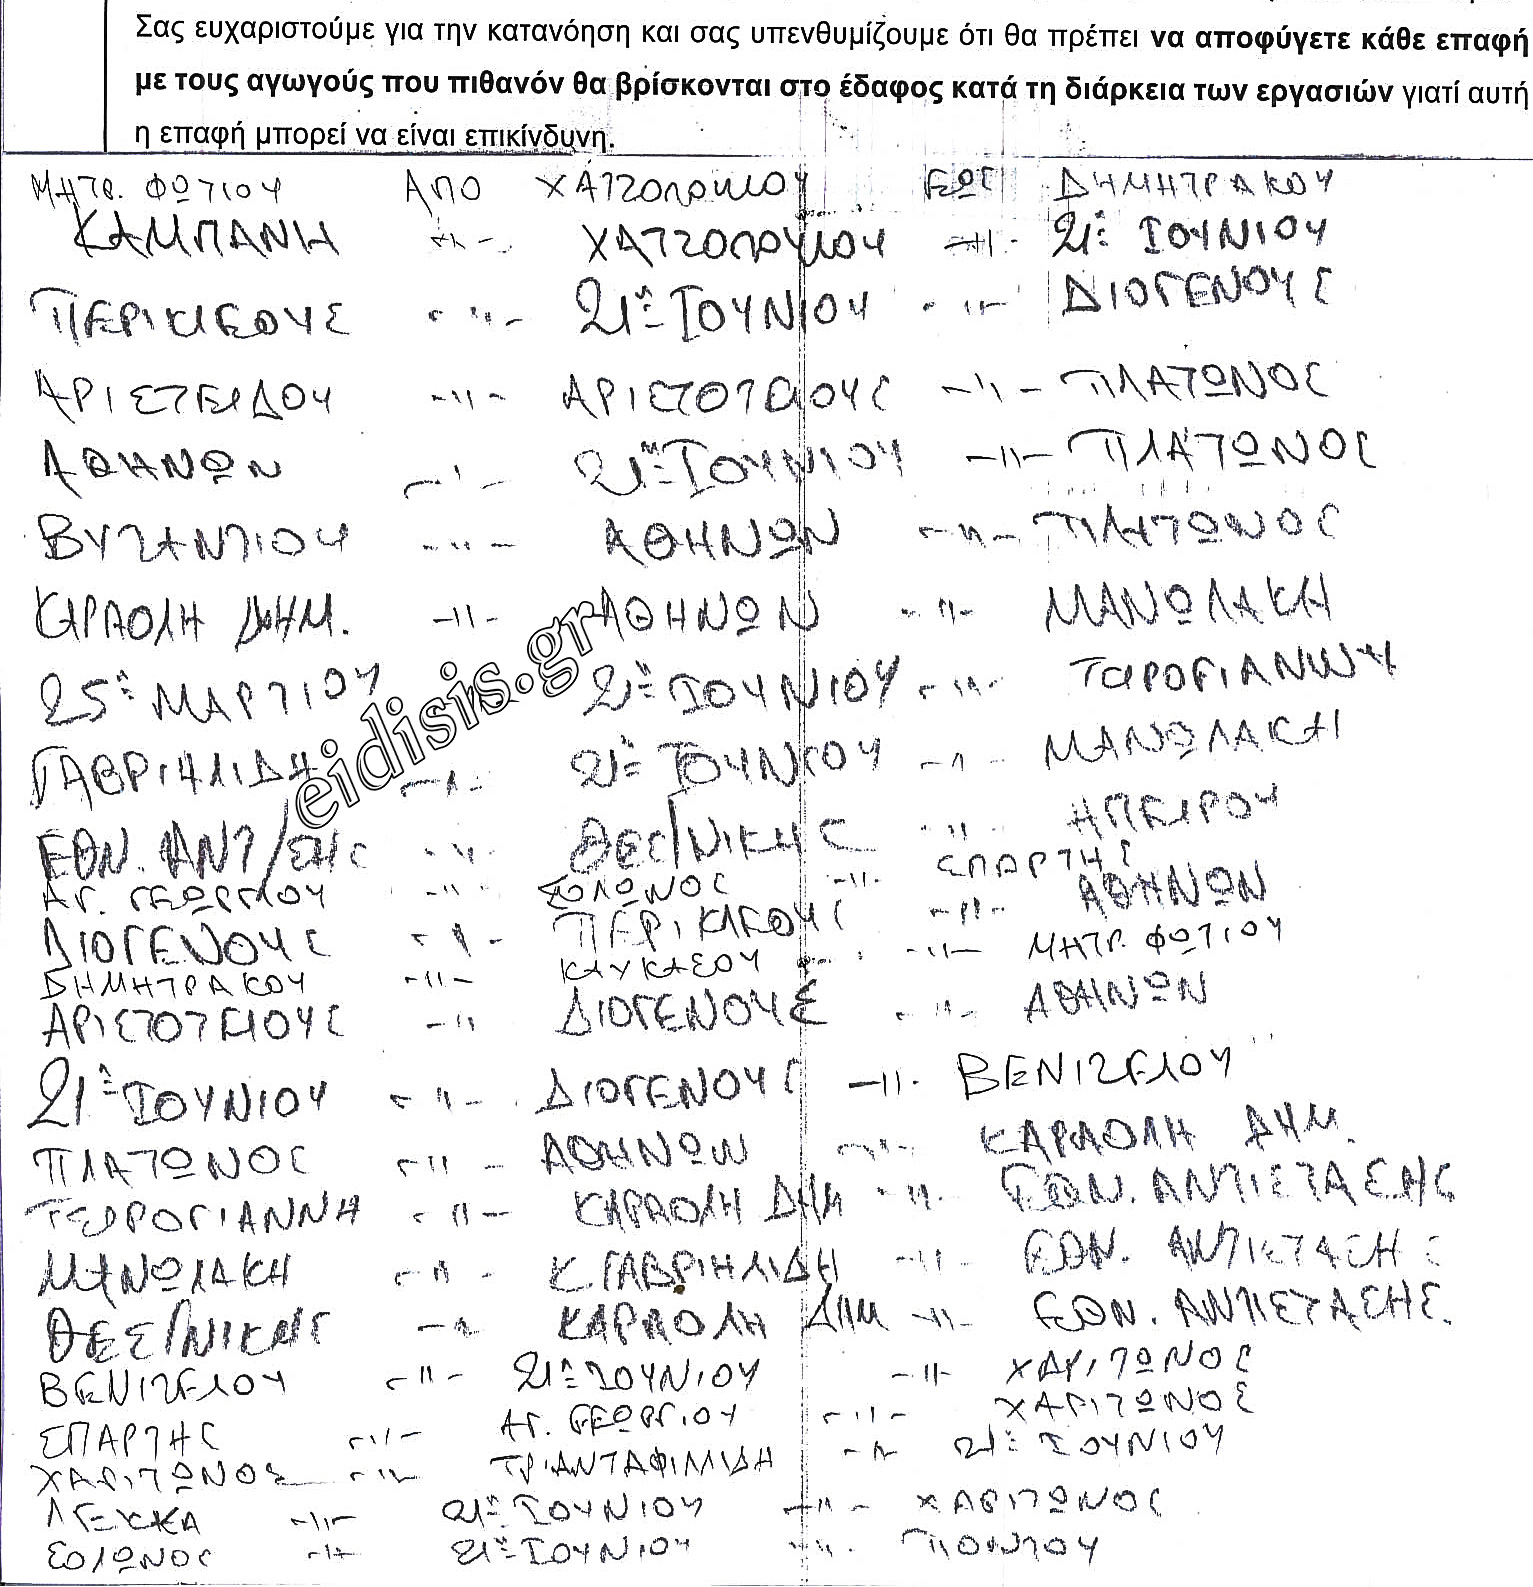 Σας ευχαριστούμε για την κατανόηση και σας υπενθυμίζουμε ότι θα πρέπει να αποφύγετε κάθε επαφή
με τους αγωγούς που πιθανόν θα βρίσκονται στο έδαφος κατά τη διάρκεια των εργασιών γιατί αυτή
η επαφή μπορεί να είναι επικίνδυνη.
ΜΗΤΡ. ΦΩΤΙΟΥ ΑΠΟ ΧΑΤΖΟΠΟΥΛΟΥ ΕΩΣ ΔΗΜΗΤΡΑΚΟΥ
ΚΑΜΠΑΝΗ -//- ΧΑΤΖΟΠΟΥΛΟΥ -//- 21ης ΙΟΥΝΙΟΥ
ΠΕΡΙΚΛΕΟΥΣ -//- 21ης ΙΟΥΝΙΟΥ -//- ΔΙΟΓΕΝΟΥΣ
ΑΡΙΣΤΕΙΔΟΥ -//- ΑΡΙΣΤΟΤΕΛΟΥΣ -//- ΠΛΑΤΩΝΟΣ
ΑΘΗΝΩΝ -//- 21ης ΙΟΥΝΙΟΥ -//- ΠΛΑΤΩΝΟΣ
ΒΥΖΑΝΤΙΟΥ -//- ΑΘΗΝΩΝ -//- ΠΛΑΤΩΝΟΣ
ΚΑΡΑΟΛΗ ΔΗΜ. -//- ΑΘΗΝΩΝ -//- ΜΑΝΩΛΑΚΗ
25ης ΜΑΡΤΙΟΥ 21ης ΙΟΥΝΙΟΥ -//-
ΓΑΒΡΙΗΛΙΔΗ -//- 21ης ΙΟΥΝΙΟΥ -//- ΜΑΝΩΛΑΚΗ
eidisis.gr
ΕΘΝ. ΑΝΤ/ΣΗΣ -//- ΘΕΣ/ΝΙΚΗΣ -//- ΗΠΕΙΡΟΥ
ΑΓ. ΓΕΩΡΓΙΟΥ -//- ΣΟΛΩΝΟΣ -//- ΣΠΑΡΤΗΣ
ΔΙΟΓΕΝΟΥΣ -//- ΠΕΡΙΚΛΕΟΥΣ -//- ΑΘΗΝΩΝ
ΔΗΜΗΤΡΑΚΟΥ -//- ΚΑΥΚΑΣΟΥ -//- ΜΗΤΡ. ΦΩΤΙΟΥ
ΑΡΙΣΤΟΤΕΛΟΥΣ -//- ΔΙΟΓΕΝΟΥΣ -//- ΑΘΗΝΩΝ
21ης ΙΟΥΝΙΟΥ -//- ΔΙΟΓΕΝΟΥΣ -//- ΒΕΝΙΖΕΛΟΥ
ΠΛΑΤΩΝΟΣ -//- ΑΘΗΝΩΝ -//- ΚΑΡΑΟΛΗ ΔΗΜ.
ΤΣΟΡΟΓΙΑΝΝΗ -//- ΚΑΡΑΟΛΗ ΔΗΜ -//- ΕΘΝ. ΑΝΤΙΣΤΑΣΗΣ
ΜΑΝΩΛΑΚΗ -//- Κ. ΓΑΒΡΙΗΛΙΔΗ -//- ΕΘΝ. ΑΝΤΙΣΤΑΣΗΣ
ΘΕΣ/ΝΙΚΗΣ -//- ΚΑΡΑΟΛΗ ΔΗΜ -//- ΕΘΝ. ΑΝΤΙΣΤΑΣΗΣ.
ΒΕΝΙΖΕΛΟΥ -//- 21ης ΙΟΥΝΙΟΥ -//- ΧΑΡΙΤΩΝΟΣ
ΣΠΑΡΤΗΣ -//- ΑΓ. ΓΕΩΡΓΙΟΥ -//- ΧΑΡΙΤΩΝΟΣ
ΧΑΡΙΤΩΝΟΣ -//- ΤΡΙΑΝΤΑΦΙΛΛΙΔΗ -//- 21ης ΙΟΥΝΙΟΥ
ΛΕΚΚΑ -//- 21ης ΙΟΥΝΙΟΥ -//- ΧΑΡΙΤΩΝΟΣ
ΣΟΛΩΝΟΣ -//- 21ης ΙΟΥΝΙΟΥ -//- ΠΟΝΤΟΥ